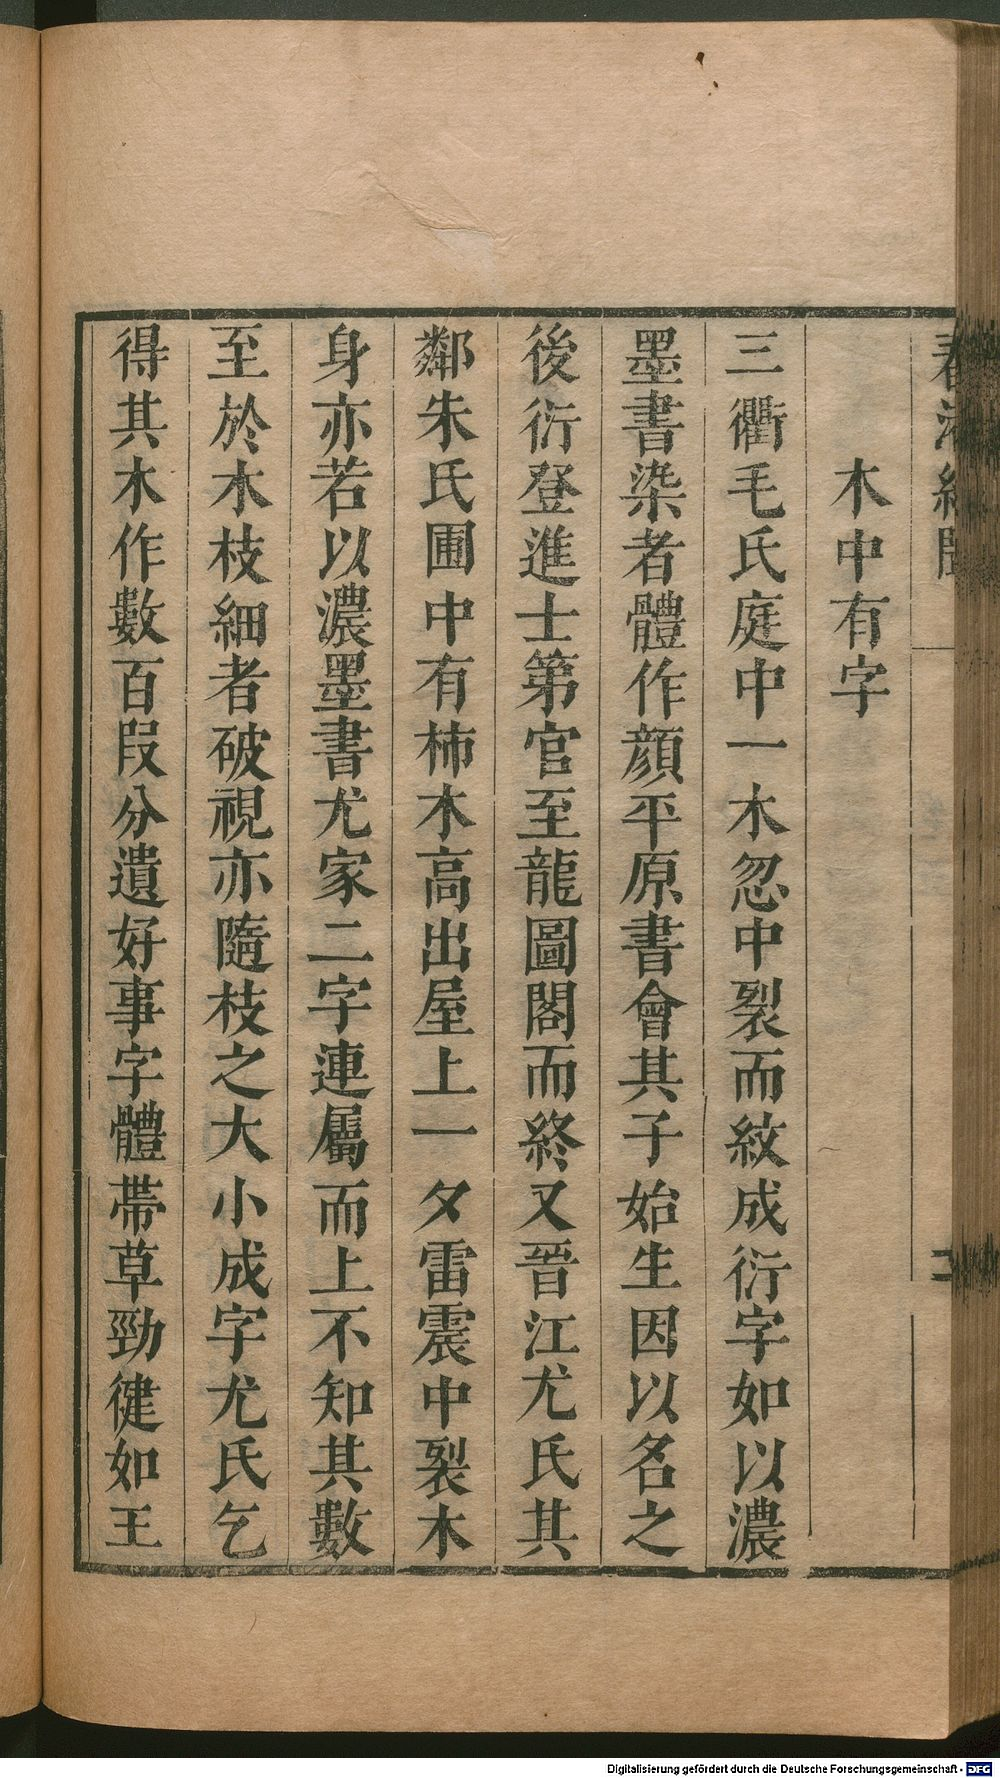 春渚紀聞
木中有字
三衢毛氏庭中一木忽中裂而紋成衍字如以濃
墨書染者體作顏平原書會其子始生因以名之
後衍登進士第官至龍圖閣而終又晉江尤氏其
鄰朱氏圃中有柿木高出屋上一夕雷震中裂木
身亦若以濃墨書尤家二字連屬而上不知其數
至於木枝細者破視亦隨枝之大小成字尤氏乞
得其木作數百段分遺好事字體帶草勁健如王
Digitalisierung gefördert durch die Deutsche Forschungsgemeinschaft - DFG